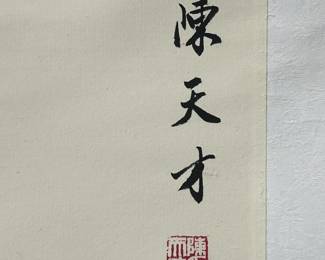 陳天才